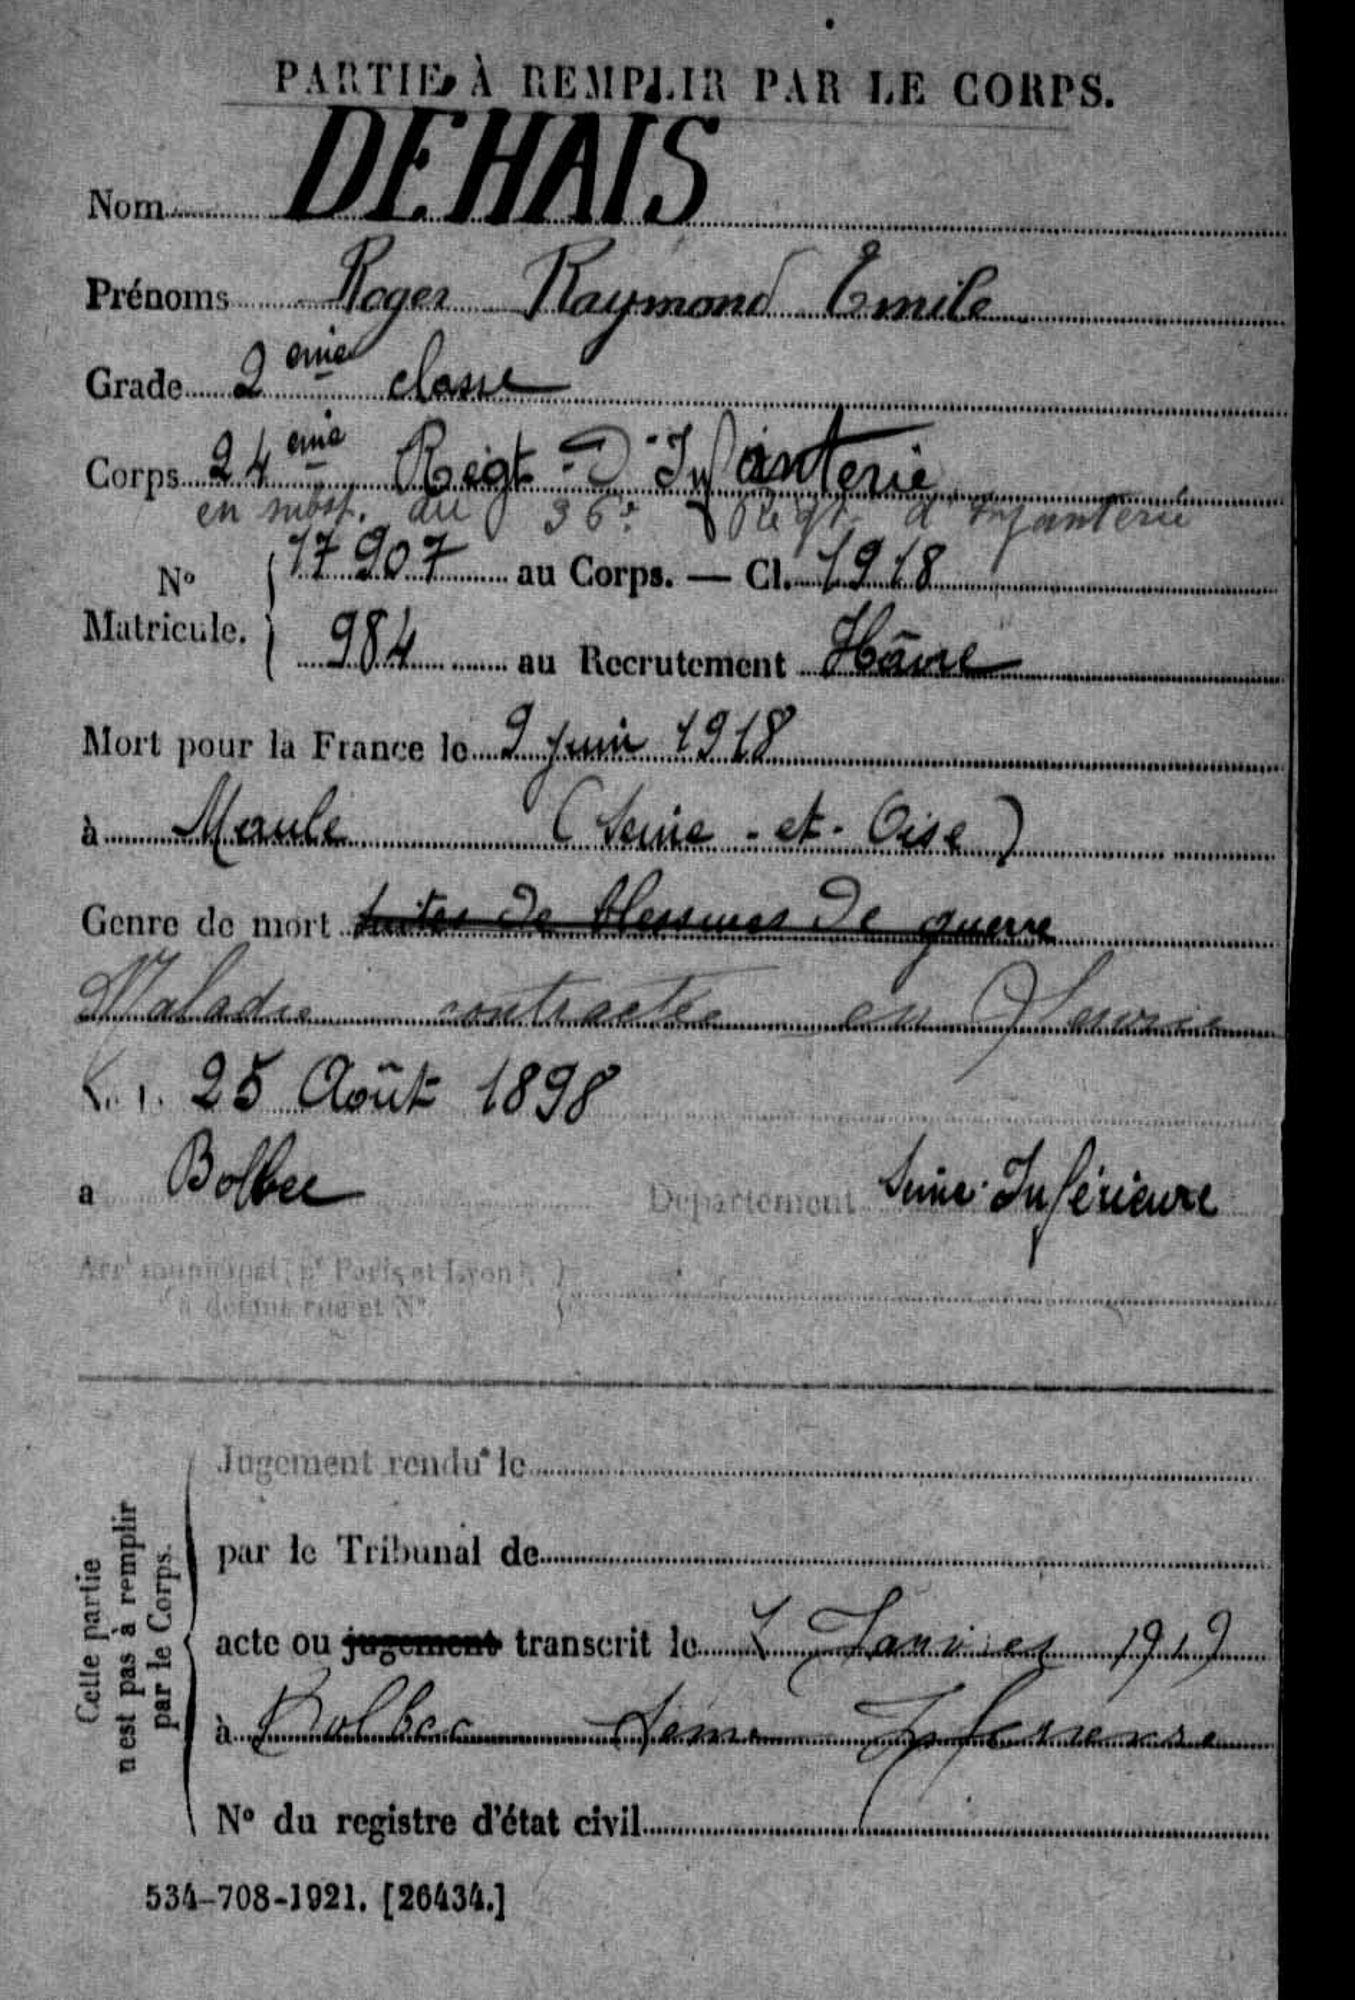 PARTIE À REMPLIR PAR LE CORPS.
Nom DEHAIS
Prénoms Roger Raymond Emile
Grade 2ème classe
Corps 24ème Régt D'Infanterie
en subst. du 36e Régt d'Infanterie
No Matricule. 17907 au Corps. — Cl. 1918
984 au Recrutement Hâvre
Mort pour la France le 9 juin 1918
à Maule (Seine-et-Oise)
Genre de mort suites de blessures de guerre
Maladie contractée en Service
25 Août 1898
a Bolbec Département Seine-Inférieure
Arrt municipal (pr Paris et Lyon), à défaut rue et No
Cette partie n'est pas à remplir par le Corps.
Jugement rendu le
par le Tribunal de
acte ou jugement transcrit le Janvier 1919
à Bolbec Seine Inférieure
No du registre d'état civil
534-708-1921. [26434.]